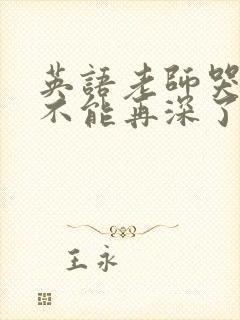 英語老師哭
不能再深了
王永